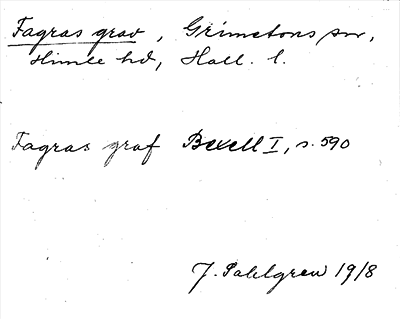 Fagras grav, Grimetons sn,
Himle hd, Hall. l.
Fagras graf Bexell I, s. 590
J. Sahlgren 1918